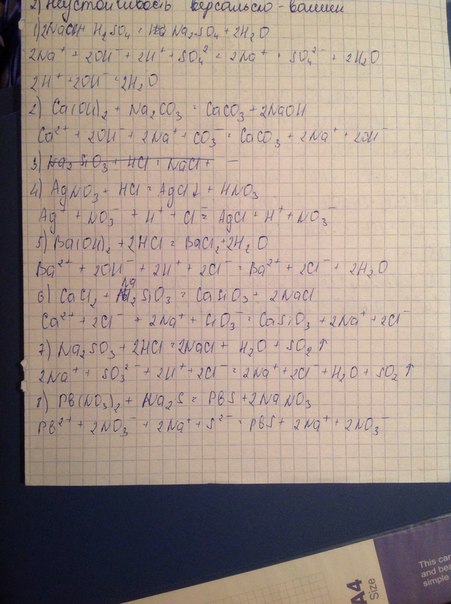 2) Неустойчивость версальско-
1) 2NaOH + H2SO4 = Na2SO4 + 2H2O
2Na⁺ + 2OH⁻ + 2H⁺ + SO4²⁻ = 2Na⁺ + SO4²⁻ + 2H2O
2H⁺ + 2OH⁻ = 2H2O
2) Ca(OH)2 + Na2CO3 = CaCO3 + 2NaOH
Ca²⁺ + 2OH⁻ + 2Na⁺ + CO3⁻ = CaCO3 + 2Na⁺ + 2OH⁻
3) Na2SiO3 + HCl = NaCl +
4) AgNO3 + HCl = AgCl↓ + HNO3
Ag⁺ + NO3⁻ + H⁺ + Cl⁻ = AgCl + H⁺ + NO3⁻
5) Ba(OH)2 + 2HCl = BaCl2 + 2H2O
Ba²⁺ + 2OH⁻ + 2H⁺ + 2Cl⁻ = Ba²⁺ + 2Cl⁻ + 2H2O
6) CaCl2 + Na2SiO3 = CaSiO3 + 2NaCl
Ca²⁺ + 2Cl⁻ + 2Na⁺ + SiO3⁻ = CaSiO3 + 2Na⁺ + 2Cl⁻
7) Na2SO3 + 2HCl = 2NaCl + H2O + SO2↑
2Na⁺ + SO3²⁻ + 2H⁺ + 2Cl⁻ = 2Na⁺ + 2Cl⁻ + H2O + SO2↑
8) PB(NO3)2 + Na2S = PBS + 2NaNO3
PB²⁺ + 2NO3⁻ + 2Na⁺ + S²⁻ = PBS + 2Na⁺ + 2NO3⁻
A4
Size
This car
and bea
simple